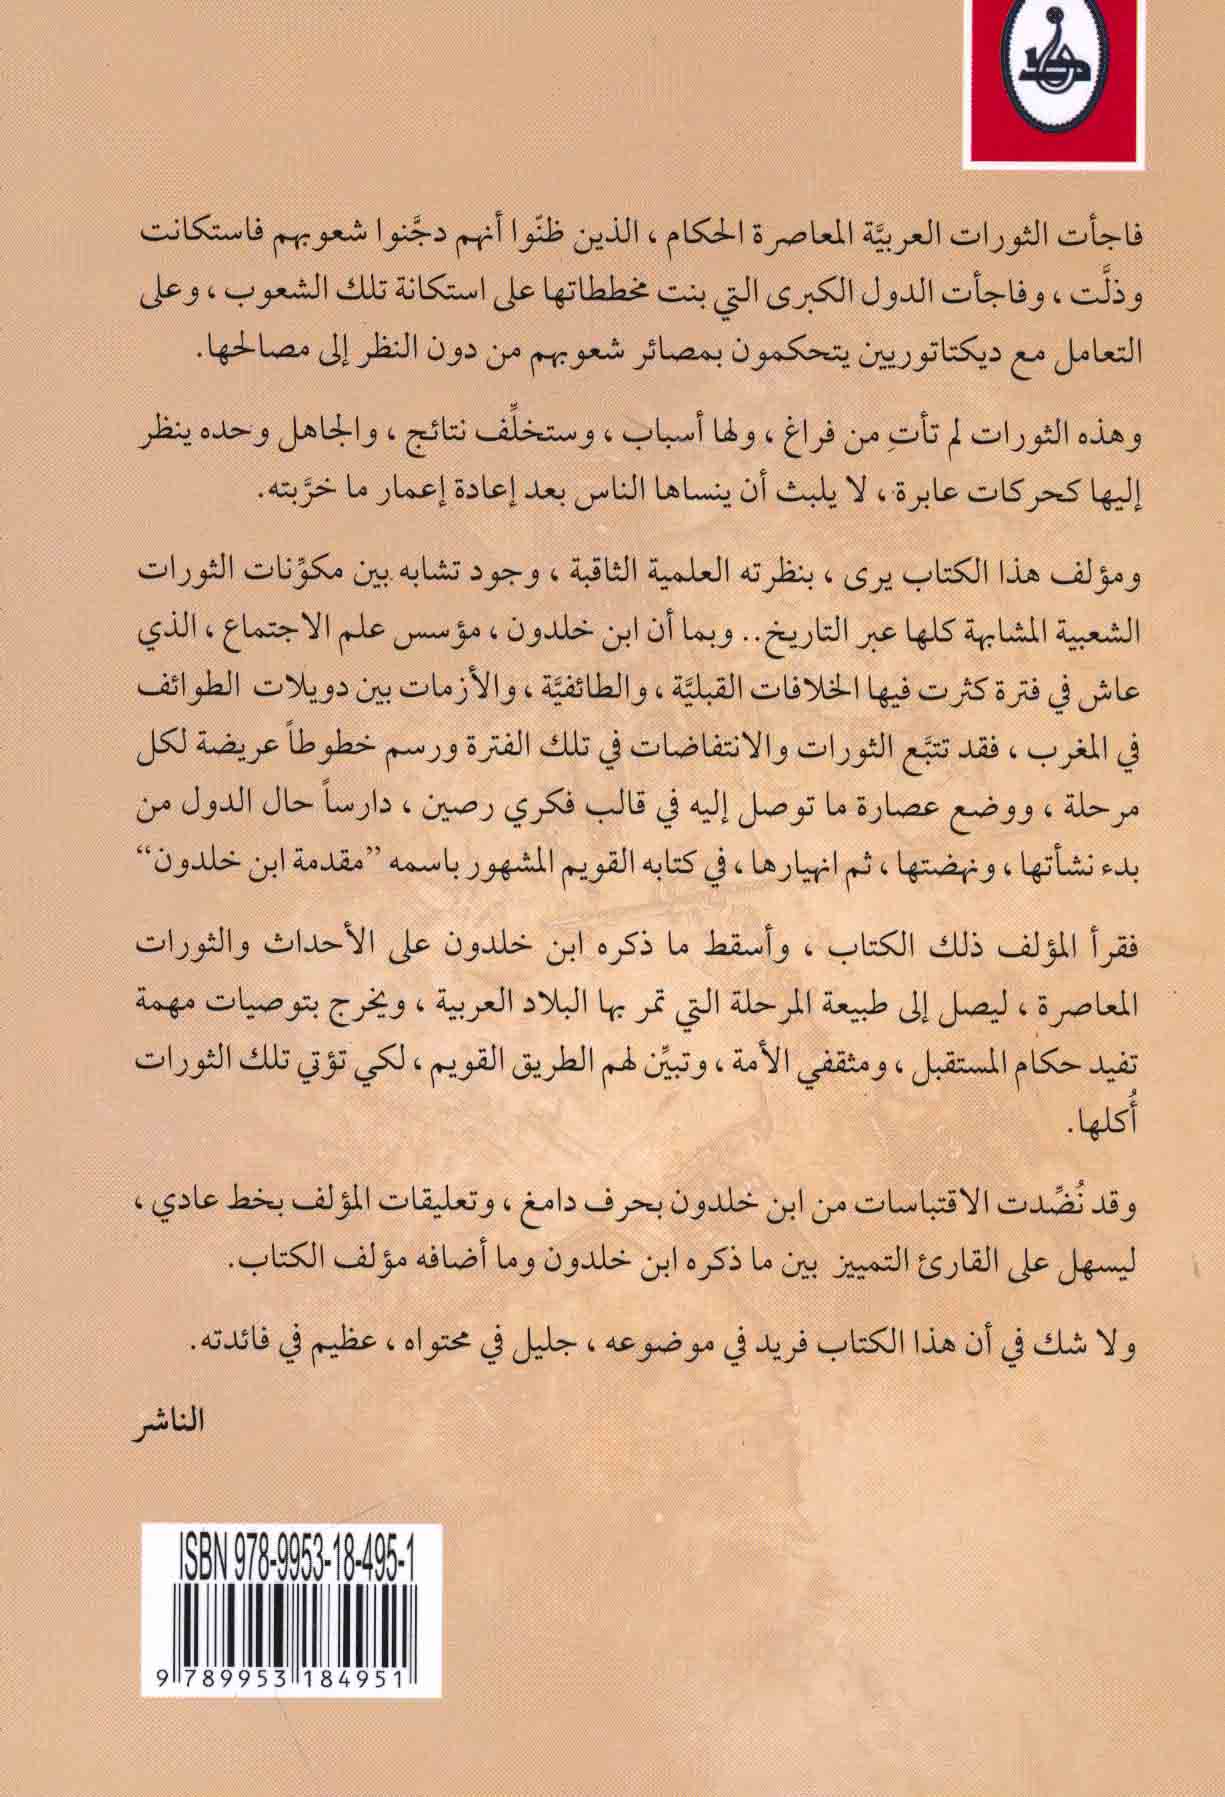 فاجأت الثورات العربيَّة المعاصرة الحكام ، الذين ظنّوا أنهم دجَّنوا شعوبهم فاستكانت
وذلَّت ، وفاجأت الدول الكبرى التي بنت مخططاتها على استكانة تلك الشعوب ، وعلى
التعامل مع ديكتاتوريين يتحكمون بمصائر شعوبهم من دون النظر إلى مصالحها.
وهذه الثورات لم تأتِ من فراغ ، ولها أسباب ، وستخلِّف نتائج ، والجاهل وحده ينظر
إليها كحركات عابرة ، لا يلبث أن ينساها الناس بعد إعادة إعمار ما خرَّبته.
ومؤلف هذا الكتاب يرى ، بنظرته العلمية الثاقبة ، وجود تشابه بين مكوِّنات الثورات
الشعبية المشابهة كلها عبر التاريخ.. وبما أن ابن خلدون ، مؤسس علم الاجتماع ، الذي
عاش في فترة كثرت فيها الخلافات القبليَّة ، والطائفيَّة ، والأزمات بين دويلات الطوائف
في المغرب ، فقد تتبَّع الثورات والانتفاضات في تلك الفترة ورسم خطوطاً عريضة لكل
مرحلة ، ووضع عصارة ما توصل إليه في قالب فكري رصين ، دارساً حال الدول من
بدء نشأتها ، ونهضتها ، ثم انهيارها ، في كتابه القويم المشهور باسمه ”مقدمة ابن خلدون“
فقرأ المؤلف ذلك الكتاب ، وأسقط ما ذكره ابن خلدون على الأحداث والثورات
المعاصرة ، ليصل إلى طبيعة المرحلة التي تمر بها البلاد العربية ، ويخرج بتوصيات مهمة
تفيد حكام المستقبل ، ومثقفي الأمة ، وتبيِّن لهم الطريق القويم ، لكي تؤتي تلك الثورات
أُكلها.
وقد نُضِّدت الاقتباسات من ابن خلدون بحرف دامغ ، وتعليقات المؤلف بخط عادي ،
ليسهل على القارئ التمييز بين ما ذكره ابن خلدون وما أضافه مؤلف الكتاب.
ولا شك في أن هذا الكتاب فريد في موضوعه ، جليل في محتواه ، عظيم في فائدته.
الناشر
ISBN 978-9953-18-495-1
9 789953 184951